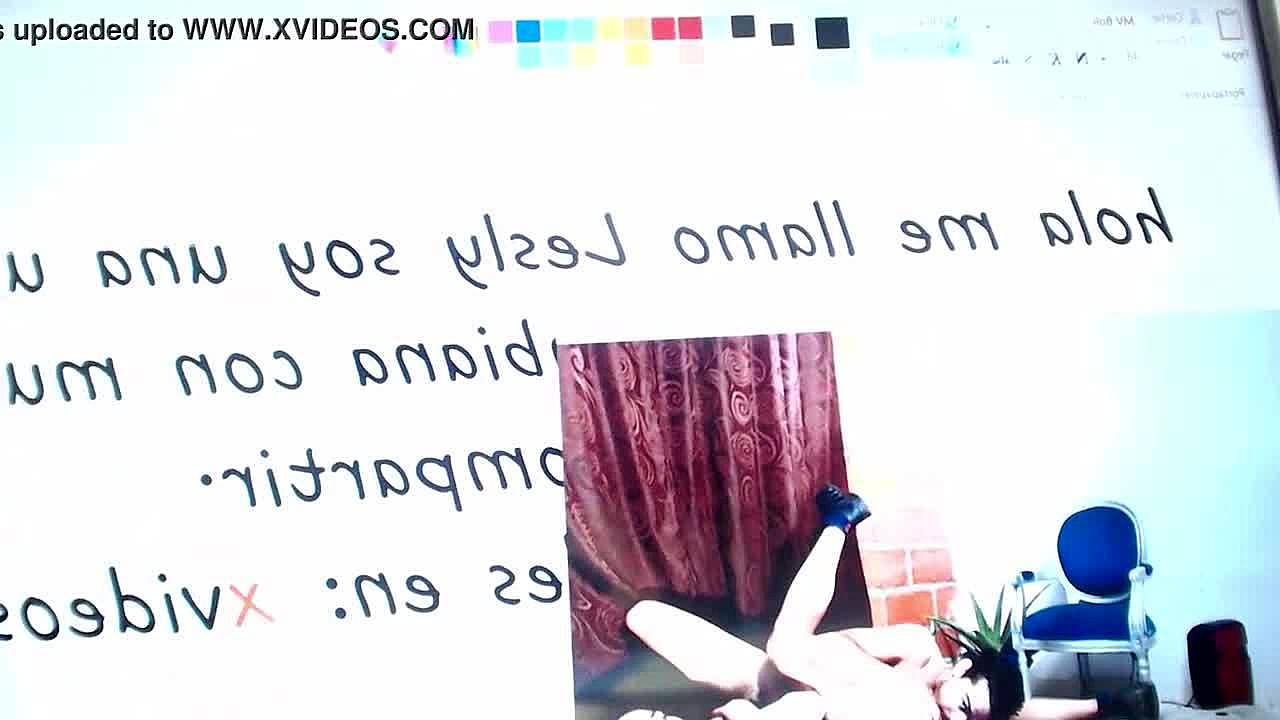 s uploaded to WWW.XVIDEOS.COM
hola me llamo Lesly soy una u
biana con mu
ompartir.
es en: xvideos